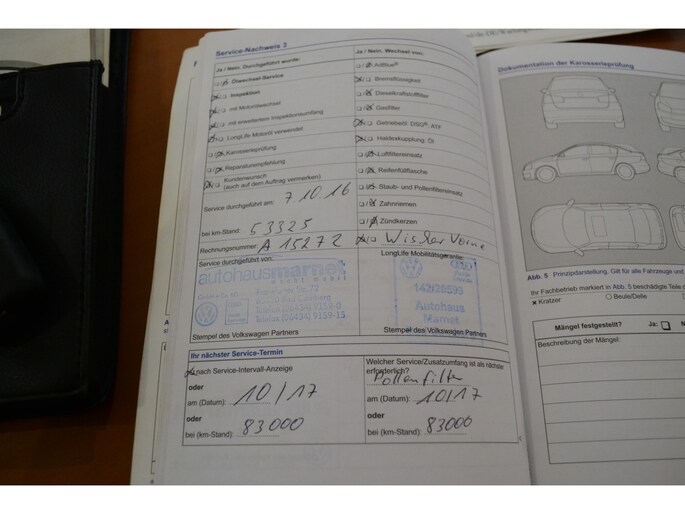 Service-Nachweis 3
Ja / Nein. Durchgeführt wurde:
Ölwechsel-Service
Inspektion
mit Motorölwechsel
mit erweitertem Inspektionsumfang
LongLife Motoröl verwendet
Karosserieprüfung
Reparaturempfehlung
Kundenwunsch
(auch auf dem Auftrag vermerken)
Service durchgeführt am: 7.10.16
bei km-Stand: 53325
Rechnungsnummer: A 15272
Service durchgeführt von:
autohausmarnet
Stempel des Volkswagen Partners
Ja / Nein. Wechsel von:
AdBlue®
Bremsflüssigkeit
Dieselkraftstofffilter
Gasfilter
Getriebeöl DSG®, ATF
Haldexkupplung, Öl
Luftfiltereinsatz
Reifenfüllflasche
Staub- und Pollenfiltereinsatz
Zahnriemen
Zündkerzen
Wischer Vorne
LongLife Mobilitätsgarantie:
142/20599
Autohaus
Marnet
Stempel des Volkswagen Partners
Ihr nächster Service-Termin
nach Service-Intervall-Anzeige
oder
am (Datum): 10/17
oder
bei (km-Stand): 83000
Welcher Service/Zusatzumfang ist als nächster
erforderlich?
Pollenfilter
am (Datum): 10/17
oder
bei (km-Stand): 83000
Dokumentation der Karosserieprüfung
Abb. 5 Prinzipdarstellung. Gilt für alle Fahrzeuge und
Ihr Fachbetrieb markiert in Abb. 5 beschädigte Teile
x Kratzer
Beule/Delle
Mängel festgestellt? Ja:
Beschreibung der Mängel: